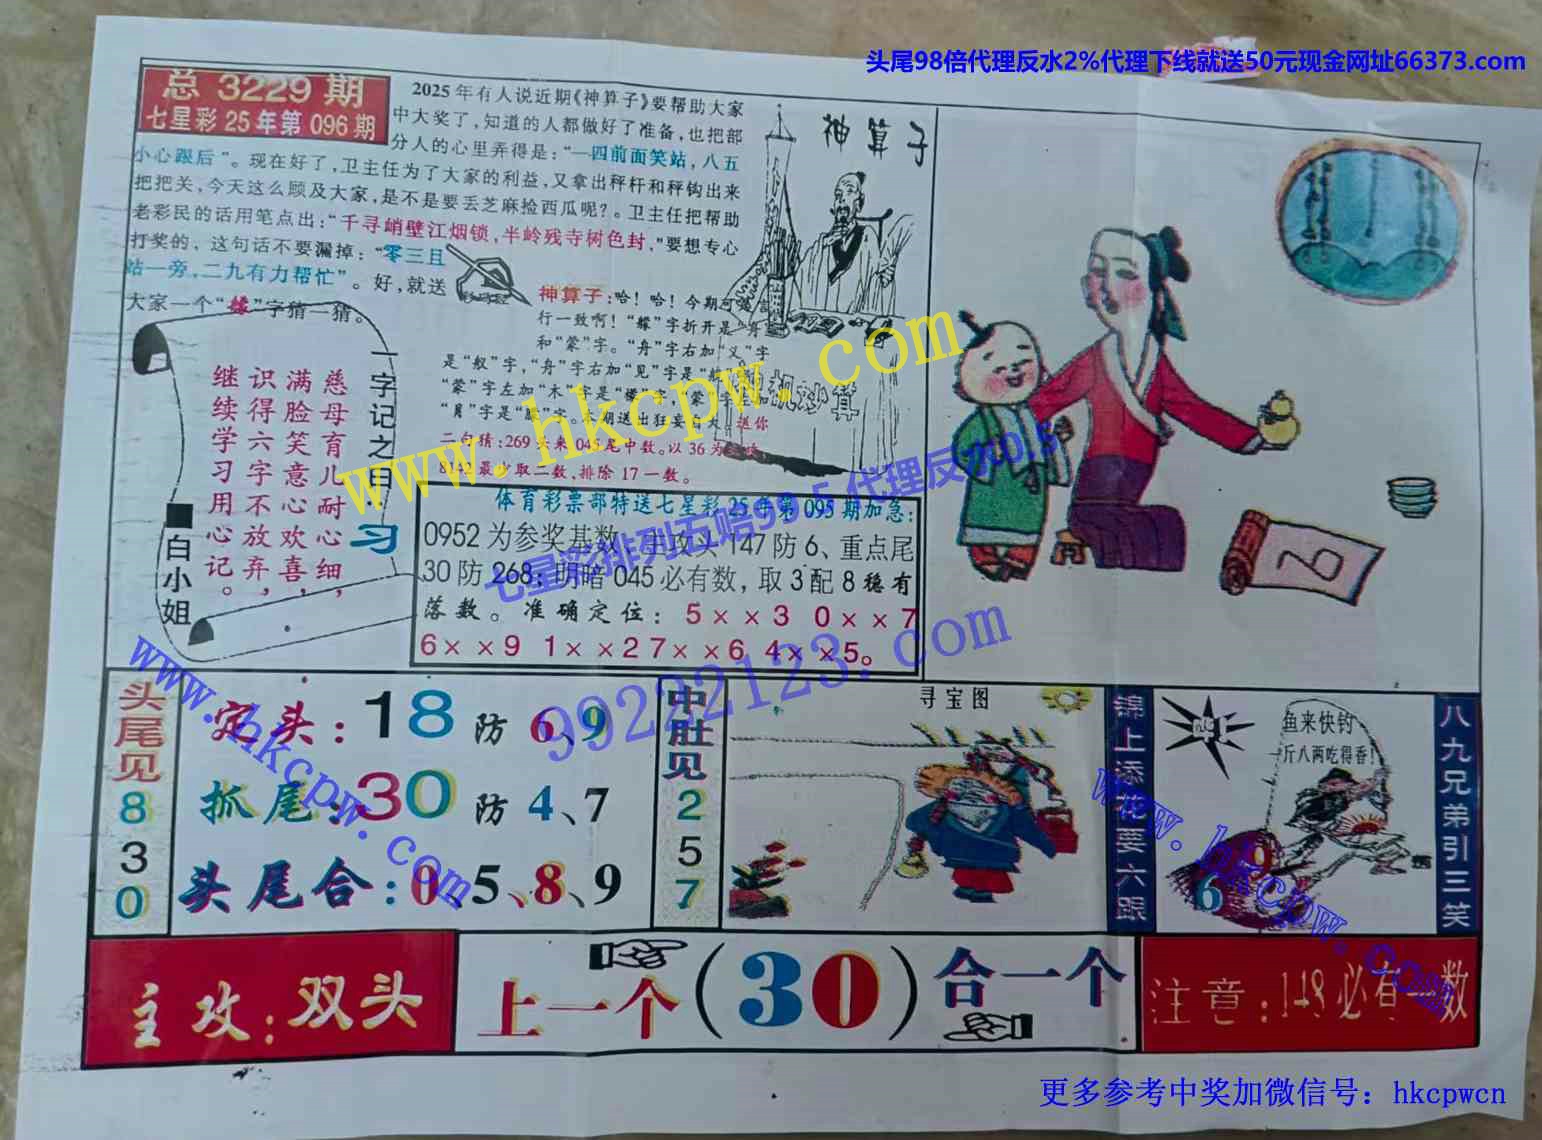 头尾98倍代理反水2%代理下线就送50元现金网址66373.com
总 3229 期
七星彩25年第 096 期
2025年有人说近期《神算子》要帮助大家
中大奖了，知道的人都做好了准备，也把部
分人的心里弄得是：“一四前面笑站，八五
小心跟后”。现在好了，卫主任为了大家的利益，又拿出秤杆和秤钩出来
把把关，今天这么顾及大家，是不是要丢芝麻捡西瓜呢？。卫主任把帮助
老彩民的话用笔点出：“千寻峭壁江烟锁，半岭残寺树色封，”要想专心
打奖的，这句话不要漏掉：“零三且
站一旁，二九有力帮忙”。好，就送
大家一个“艨”字猜一猜。
神算子
神算子：哈！哈！今期可是言
行一致啊！“艨”字折开是“舟”
和“蒙”字。“舟”字右加“义”字
是“舣”字，“舟”字右加“见”字是
“蒙”字左加“木”字是“檬”字，“蒙”字左加
“月”字是“朦”字。
二句猜：269 045尾中数。以36为
8142最少取二数，排除17一数。
一字记之曰：习
慈母育儿耐心细，
满脸笑意心欢喜，
识得六字不放弃，
继续学习用心记。
■白小姐
体育彩票部特送七星彩25年第095期加急：
0952为参奖基数，主攻头147防6、重点尾
30防268；明暗045必有数，取3配8稳有
落数。准确定位：5××3 0××7
6××9 1××2 7××6 4××5。
www.hkcpw.com
七星彩排列五赔99.5代理反水0.5
99222123.com
www.hkcpw.com
www.hkcpw.com
头尾见830
定头：18防6、9
抓尾：30防4、7
头尾合：0、5、8、9
中肚见257
寻宝图
锦上添花要六跟
鱼来快钓
斤八两吃得香！
6
9
八九兄弟引三笑
主攻：双头
上一个（30）合一个
注意：148必有一数
更多参考中奖加微信号：hkcpwcn